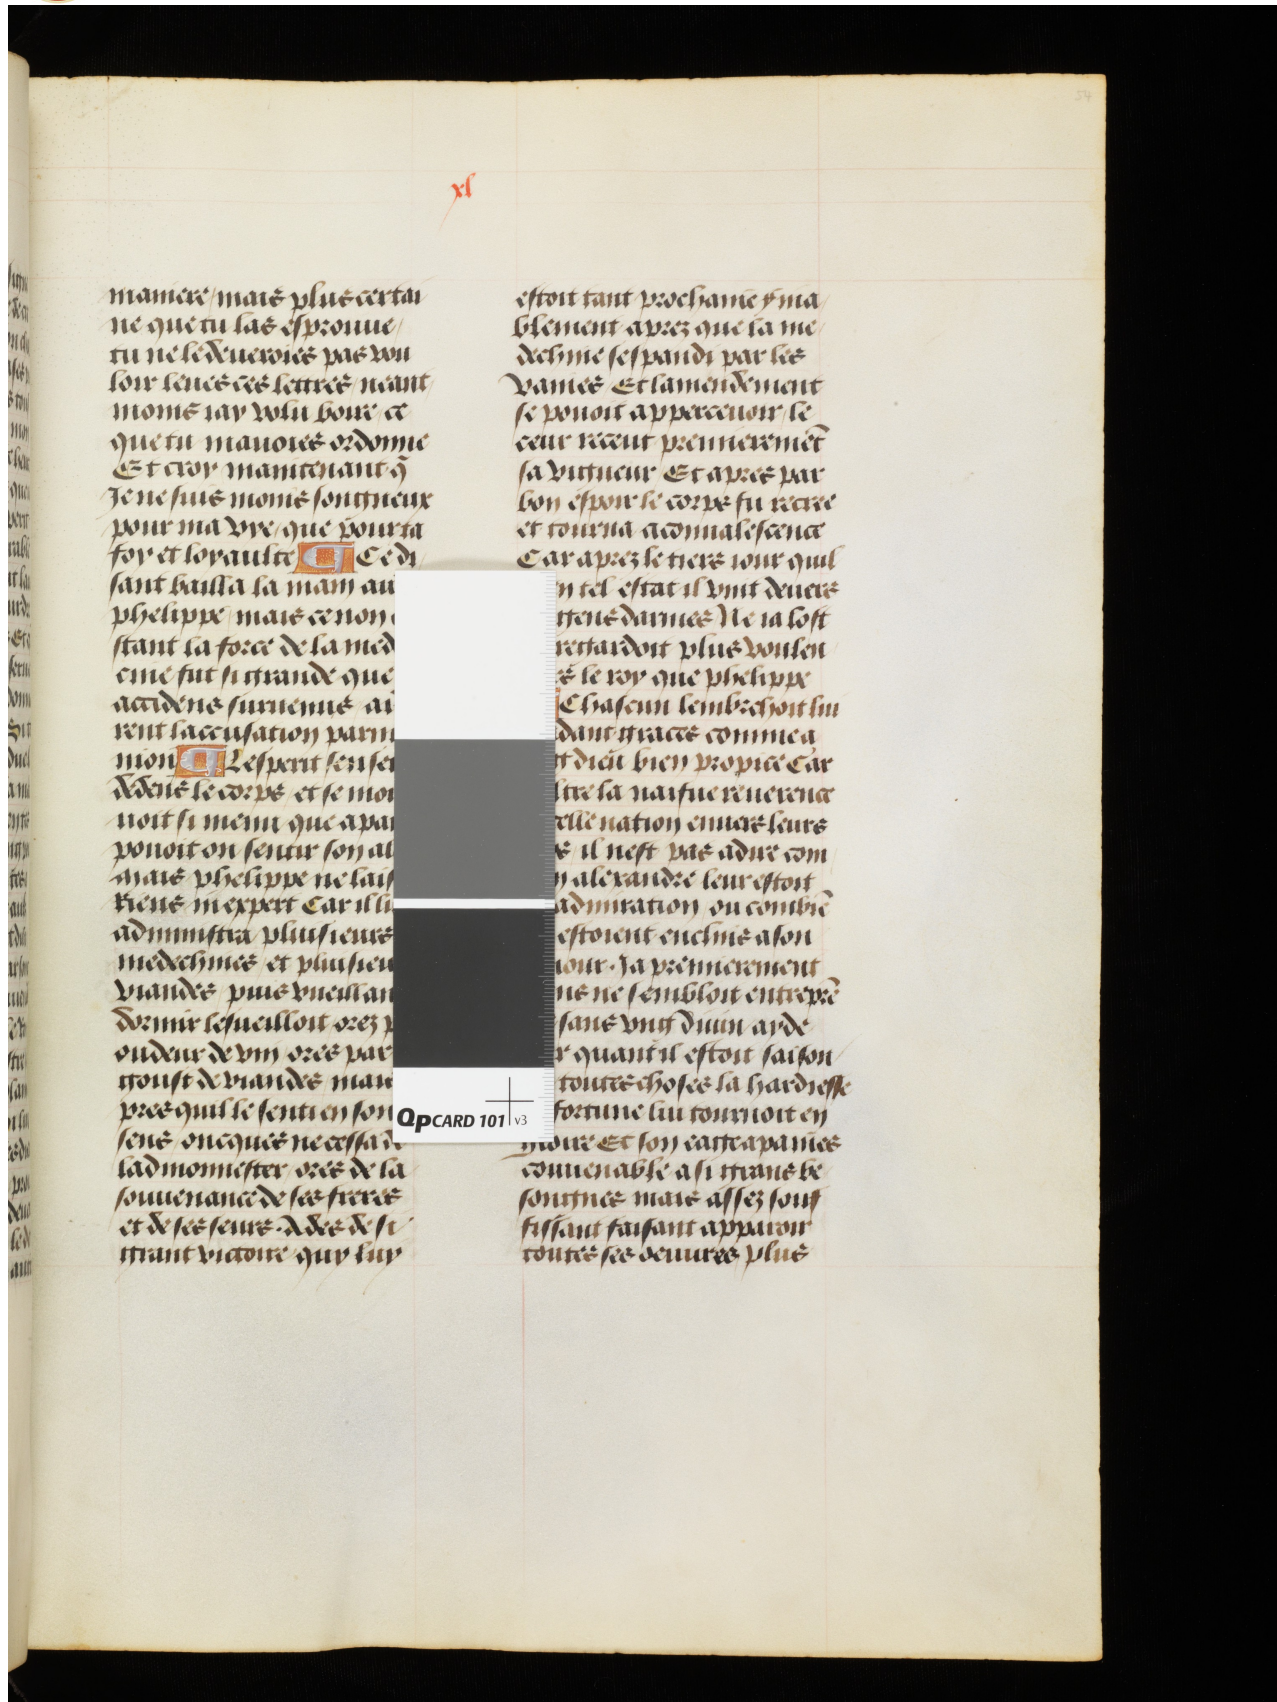 54
xl
maniere / mais plus certai
ne que tu las esprouue /
tu ne le deueroies pas vou
loir leues ces lettres / neant
moins iay volu boire / ce
que tu mauoies ordonne
Et croy maintenant q̃
Je ne suis moins songneux
pour ma vye / que pour ta
foy et loyaulte ¶ Ce di
sant bailla la main au
phelippe / mais ce non
stant la force de la med
cine fut si grande que
accidens suruenus
rent laccusation parm
nion ¶ Lesperit sen
dedens le corps / et se mo
uoit si menu que a pai
pouoit on sentir son al
Mais phelippe ne lais
Riens inexpert Car il lu
administra pluisieurs
medechines et pluisieu
viandes / puis vueillan
dormir lesueilloit orez
oudeur de vin ores par
goust de viandes / mais
pres quil le senti en son
sens oncques ne cessa de
ladmonnester / ores de la
souuenance de ses freres
et de ses seurs . Ades de si
grant victoire / quy luy
estoit tant prochaine
blement aprez que la me
dechine sespandi par les
vaines Et lamendement
se pouoit appercevoir / le
ceur recent premieremẽt
sa vigueur Et apres par
bon espoir le corps fu recree
et tourna a conualescence
Car aprez le tiers iour quil
en tel estat il vint deuers
gens darmes Ne ia lost
regardoit plus voulen
le roy que phelippe
Chascun lembrechoit / lui
dant graces comme a
dieu bien propice Car
la naifue reuerence
celle nation enuers leurs
il nest pas a dire com
alexandre leur estoit
admiration / ou combiẽ
estoient enclins a son
Ja premierement
ne sembloit entreprẽ
sans vng diuin ayde
quant il estoit saison
toutes choses la hardiesse
fortune lui tournoit en
gloire Et son eage a paines
couuenable a si grans be
songnes mais assez souf
fissant faisant apparoir
toutes ses oeuures plus
QPCARD 101 v3